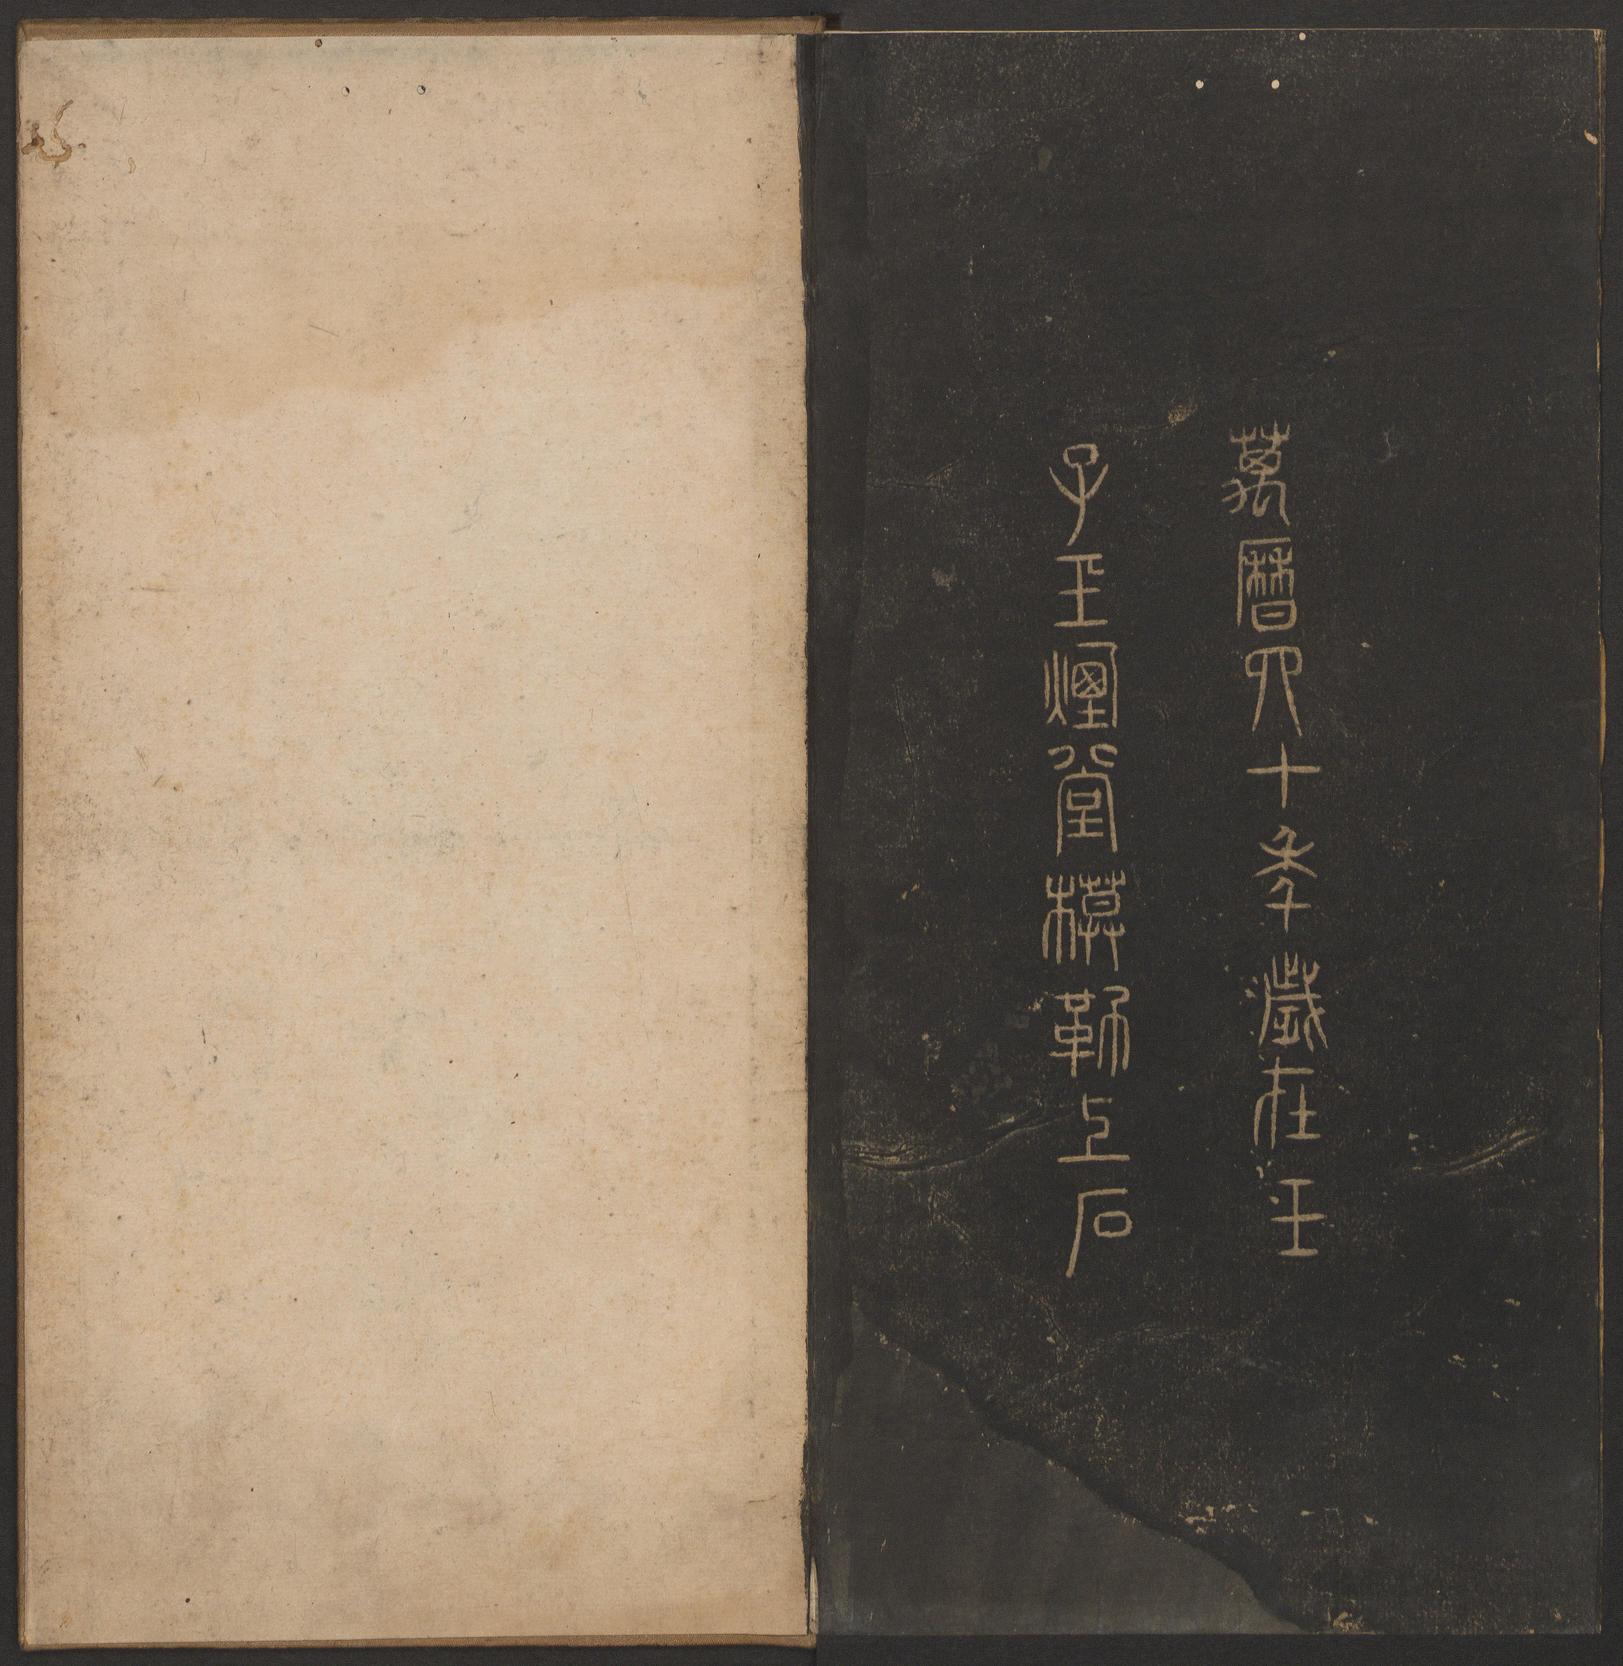 萬曆四十年歲在壬
子玉煙堂模勒上石